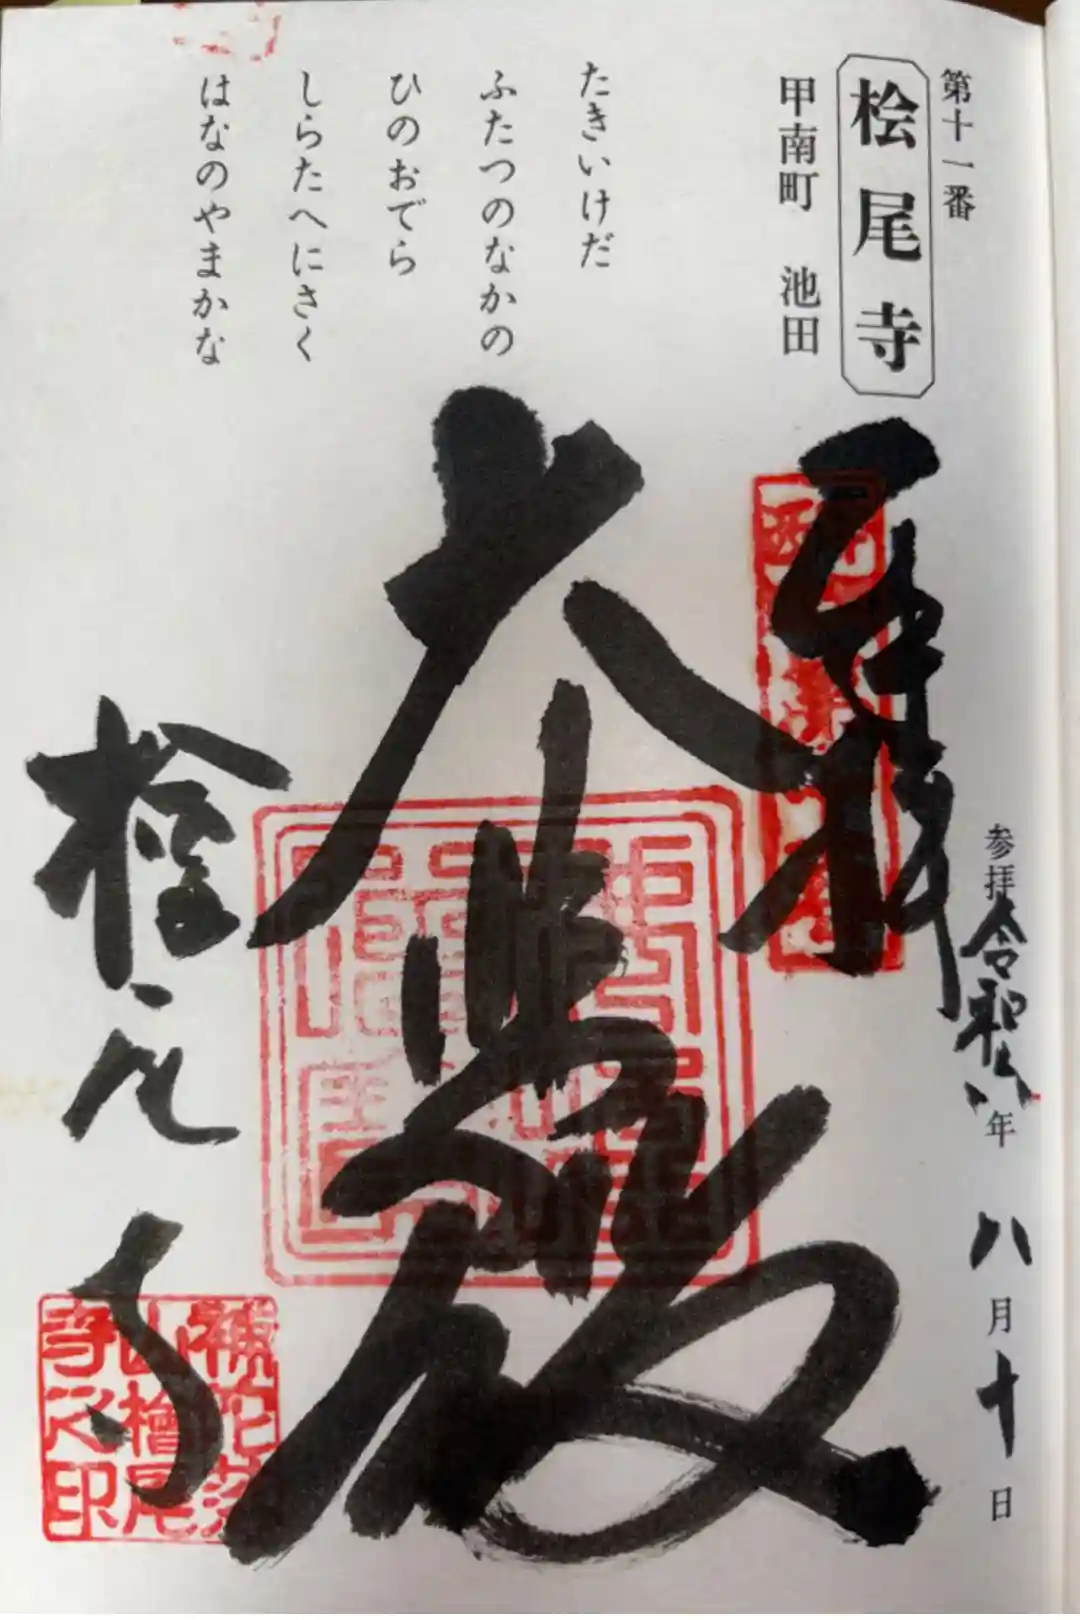 第十一番
桧尾寺
甲南町 池田
たきいけだ
ふたつのなかの
ひのおでら
しらたへにさく
はなのやまかな
奉拝
参拝令和六年八月十日
大悲殿
桧尾寺
補陀落
山檜尾
寺之印